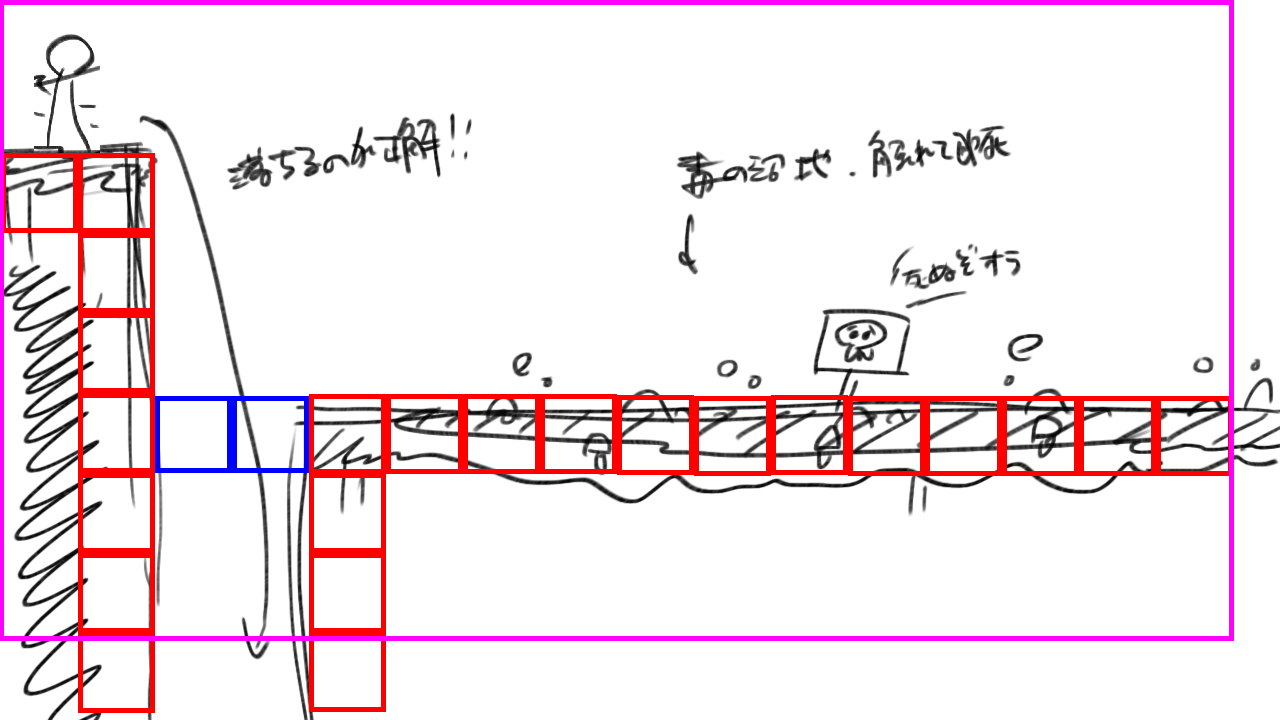 落ちるのが正解!!
毒の沼地.触れて即死
死ぬぞオラ